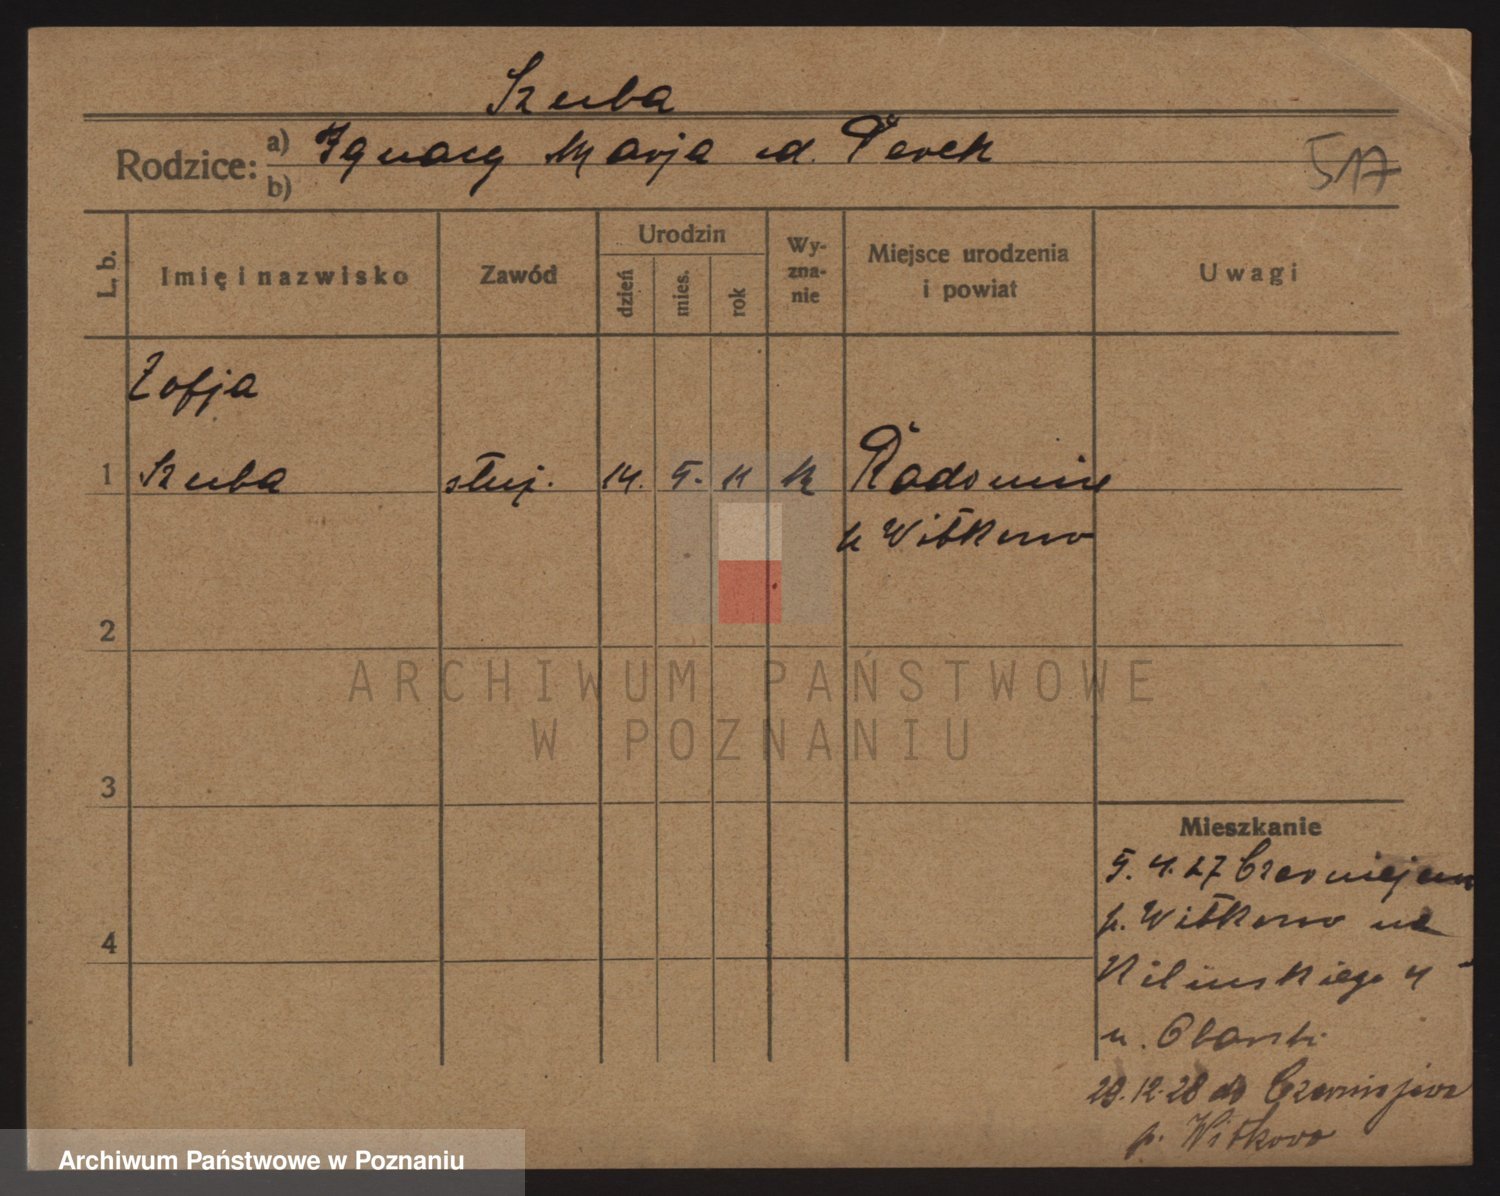 Szuba
Rodzice:
a) Ignacy Marja ud. Perek
b)
517
L. b.
Imię i nazwisko
Zawód
Urodzin
dzień
mies.
rok
Wy-
zna-
nie
Miejsce urodzenia
i powiat
Uwagi
Zofja
1 Szuba służ. 14. 5. 11 k Radomice
p Witkowo
2
3
4
Mieszkanie
5. 4. 27 Czerniejewo
p. Witkowo na
Kilinskiego 4
u.
29.12.28 do Czerniejewa
p. Witkowo
ARCHIWUM PAŃSTWOWE
W POZNANIU
Archiwum Państwowe w Poznaniu